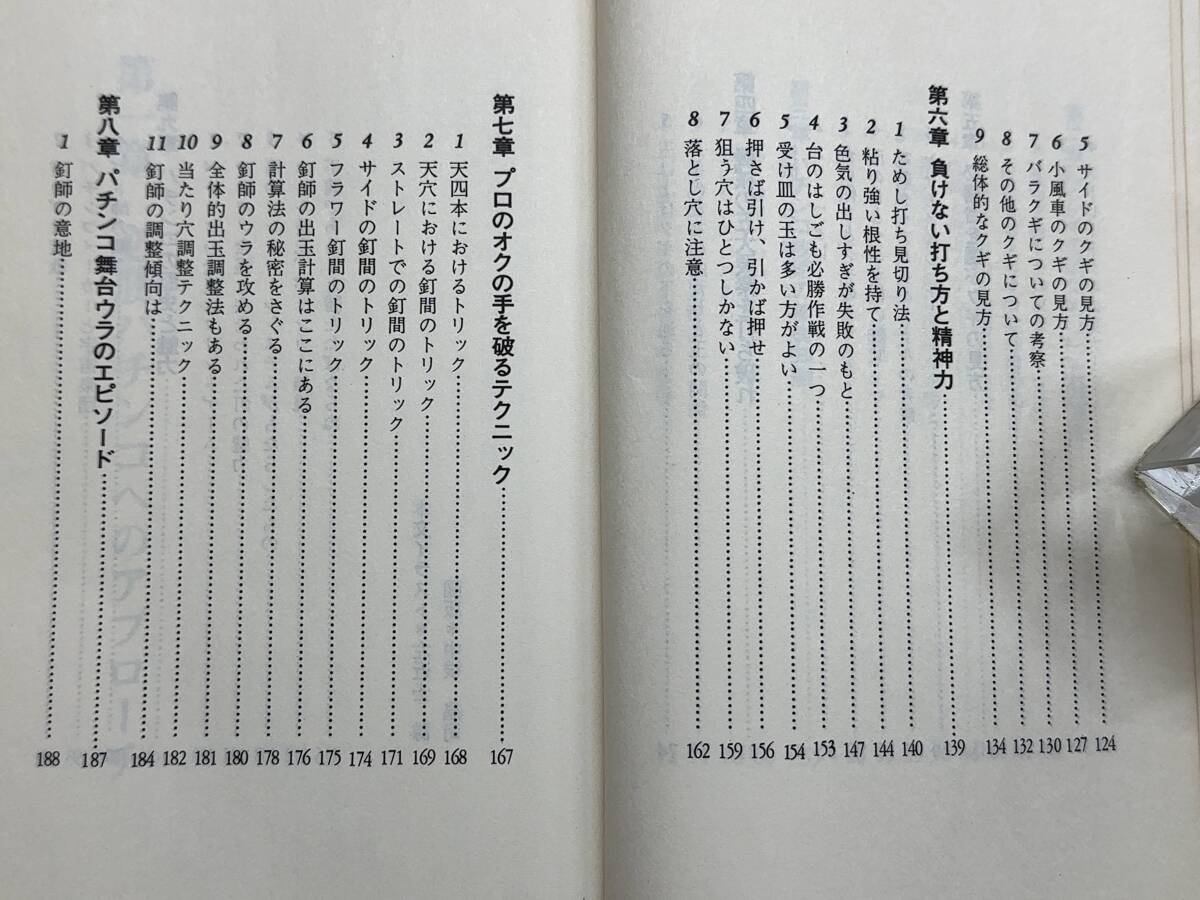 5 サイドのクギの見方……124
6 小風車のクギの見方……127
7 バラクギについての考察……130
8 その他のクギについて……132
9 総体的なクギの見方……134
第六章 負けない打ち方と精神力……139
1 ためし打ち見切り法……140
2 粘り強い根性を持て……144
3 色気の出しすぎが失敗のもと……147
4 台のはしごも必勝作戦の一つ……153
5 受け皿の玉は多い方がよい……154
6 押さば引け、引かば押せ……156
7 狙う穴はひとつしかない……159
8 落とし穴に注意……162
第七章 プロのオクの手を破るテクニック……167
1 天四本におけるトリック……168
2 天穴における釘間のトリック……169
3 ストレートでの釘間のトリック……171
4 サイドの釘間のトリック……174
5 フラワー釘間のトリック……175
6 釘師の出玉計算はここにある……176
7 計算法の秘密をさぐる……178
8 釘師のウラを攻める……180
9 全体的出玉調整法もある……181
10 当たり穴調整テクニック……182
11 釘師の調整傾向は……184
第八章 パチンコ舞台ウラのエピソード……187
1 釘師の意地……188